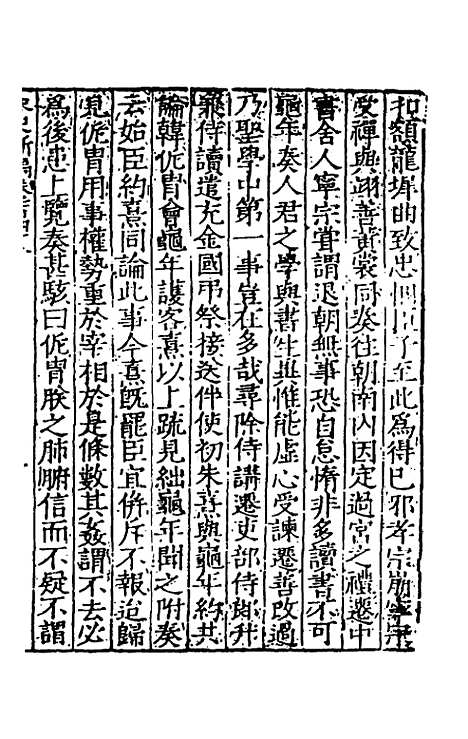 扣額龍墀曲致忠臣子至此為得已邪孝宗崩寧宗
受禪與翊善黄裳同奏往朝南內因定過宮之禮遷中
書舍人寧宗嘗謂退朝無事恐自怠惰非多讀書不可
龜年奏人君之學與書生異惟能虛心受諫遷善改過
乃聖學中第一事豈在多哉尋除侍講遷吏部侍郎升
兼侍讀遣充金國弔祭接送伴使初朱熹與龜年約共
論韓侂胄會龜年護客熹以上疏見絀龜年聞之附奏
云始臣約熹同論此事今熹既罷臣宜併斥不報迨歸
見侂胄用事權勢重於宰相於是條數其姦謂不去必
為後患上覽奏甚駭曰侂胄朕之肺腑信而不疑不謂